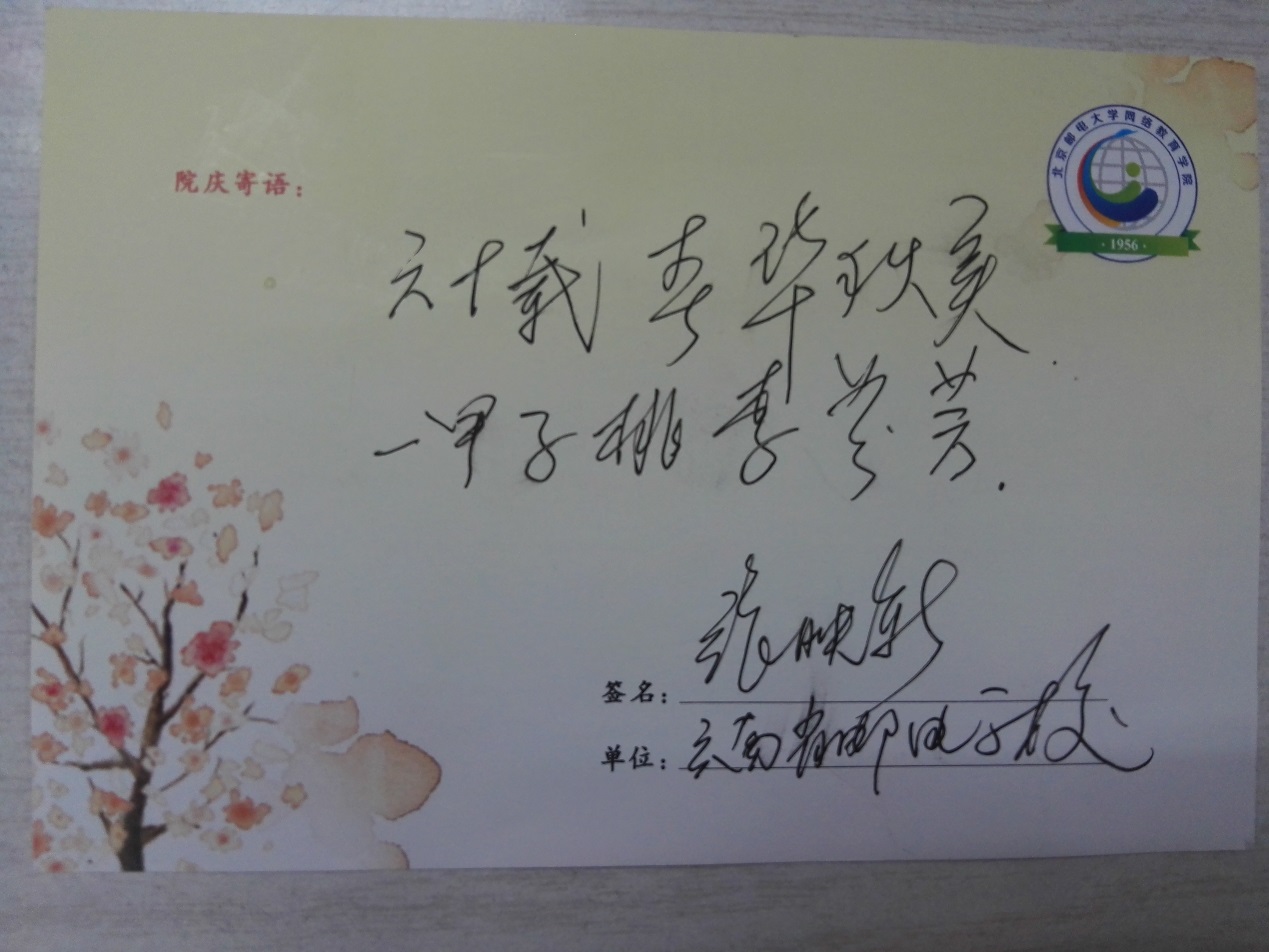 北京邮电大学网络教育学院
· 1956 ·
院庆寄语：
六十载春华秋实，
一甲子桃李芬芳．
签名： 张映新
单位： 云南省邮电学校